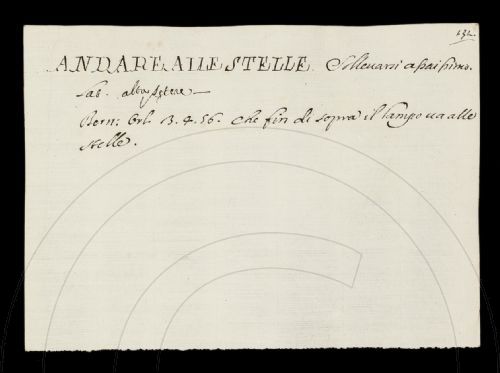 132
ANDARE ALLE STELLE. Sollevarsi assaissimo.
Lat. alta petere
Bern: Orl. 3. 4. 56. Che fin di sopra il lampo va alle
stelle.